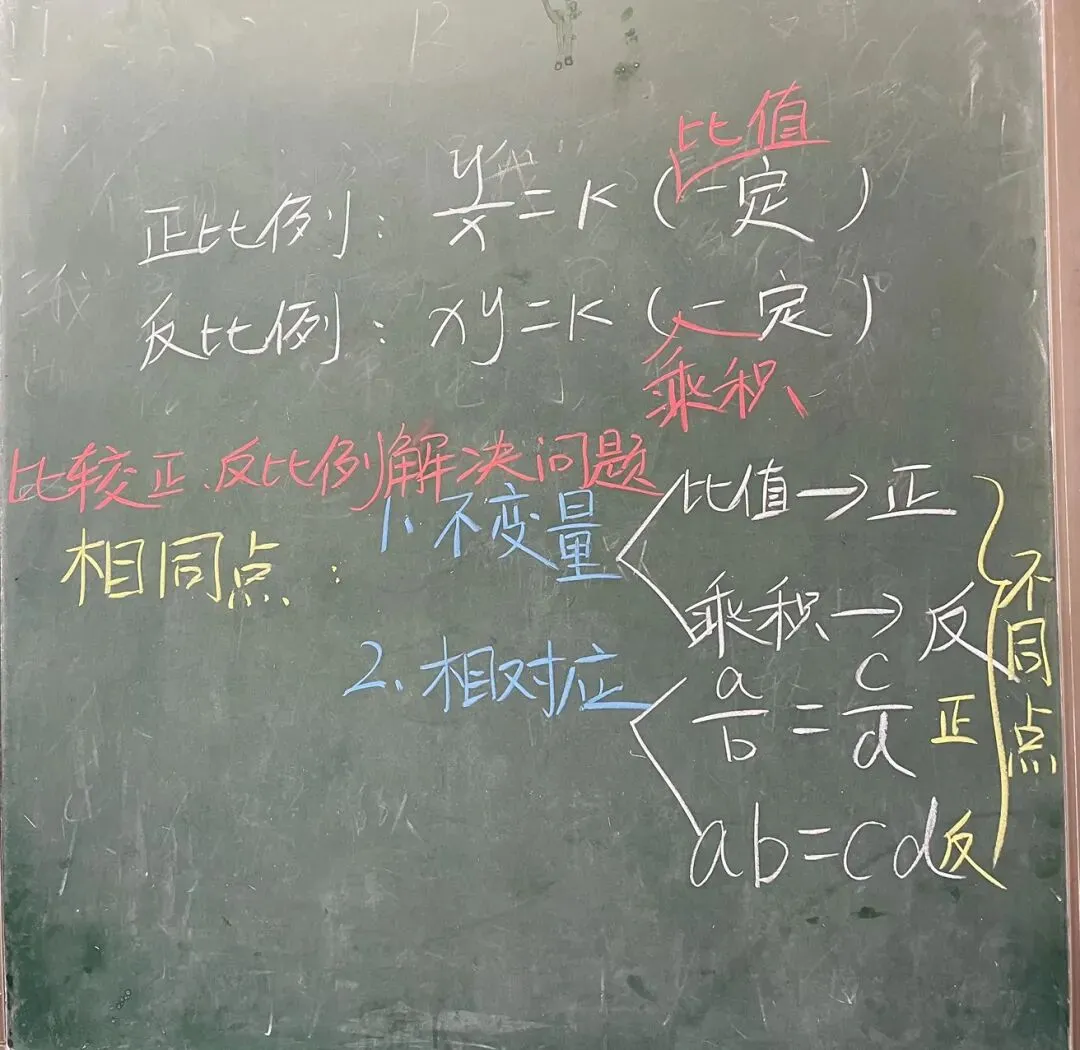 比值
正比例: y/x=K(一定)
反比例: xy=K(一定)
乘积
比较正、反比例解决问题
相同点: 1、不变量 比值→正
乘积→反
2、相对应 a/b=c/d 正
ab=cd 反
不同点